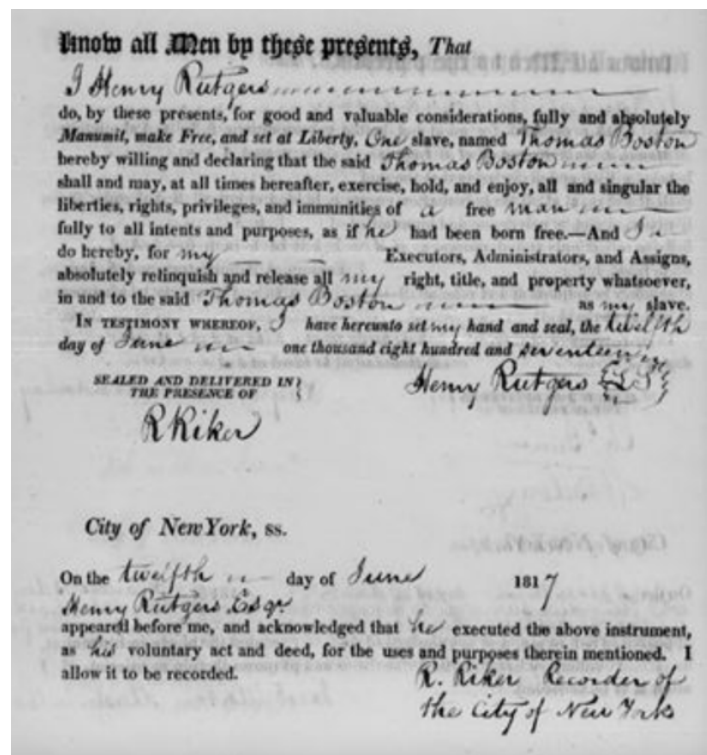 Know all Men by these presents, That
I Henry Rutgers
do, by these presents, for good and valuable considerations, fully and absolutely
Manumit, make Free, and set at Liberty, One slave, named Thomas Boston
hereby willing and declaring that the said Thomas Boston
shall and may, at all times hereafter, exercise, hold, and enjoy, all and singular the
liberties, rights, privileges, and immunities of a free man
fully to all intents and purposes, as if he had been born free.—And I
do hereby, for my Executors, Administrators, and Assigns,
absolutely relinquish and release all my right, title, and property whatsoever,
in and to the said Thomas Boston as my slave.
IN TESTIMONY WHEREOF, I have hereunto set my hand and seal, the twelfth
day of June one thousand eight hundred and seventeen
SEALED AND DELIVERED IN Henry Rutgers L.S.
THE PRESENCE OF
R Riker
City of New York, ss.
On the twelfth day of June 1817
Henry Rutgers Esqr
appeared before me, and acknowledged that he executed the above instrument,
as his voluntary act and deed, for the uses and purposes therein mentioned. I
allow it to be recorded.
R. Riker Recorder of
the City of New York